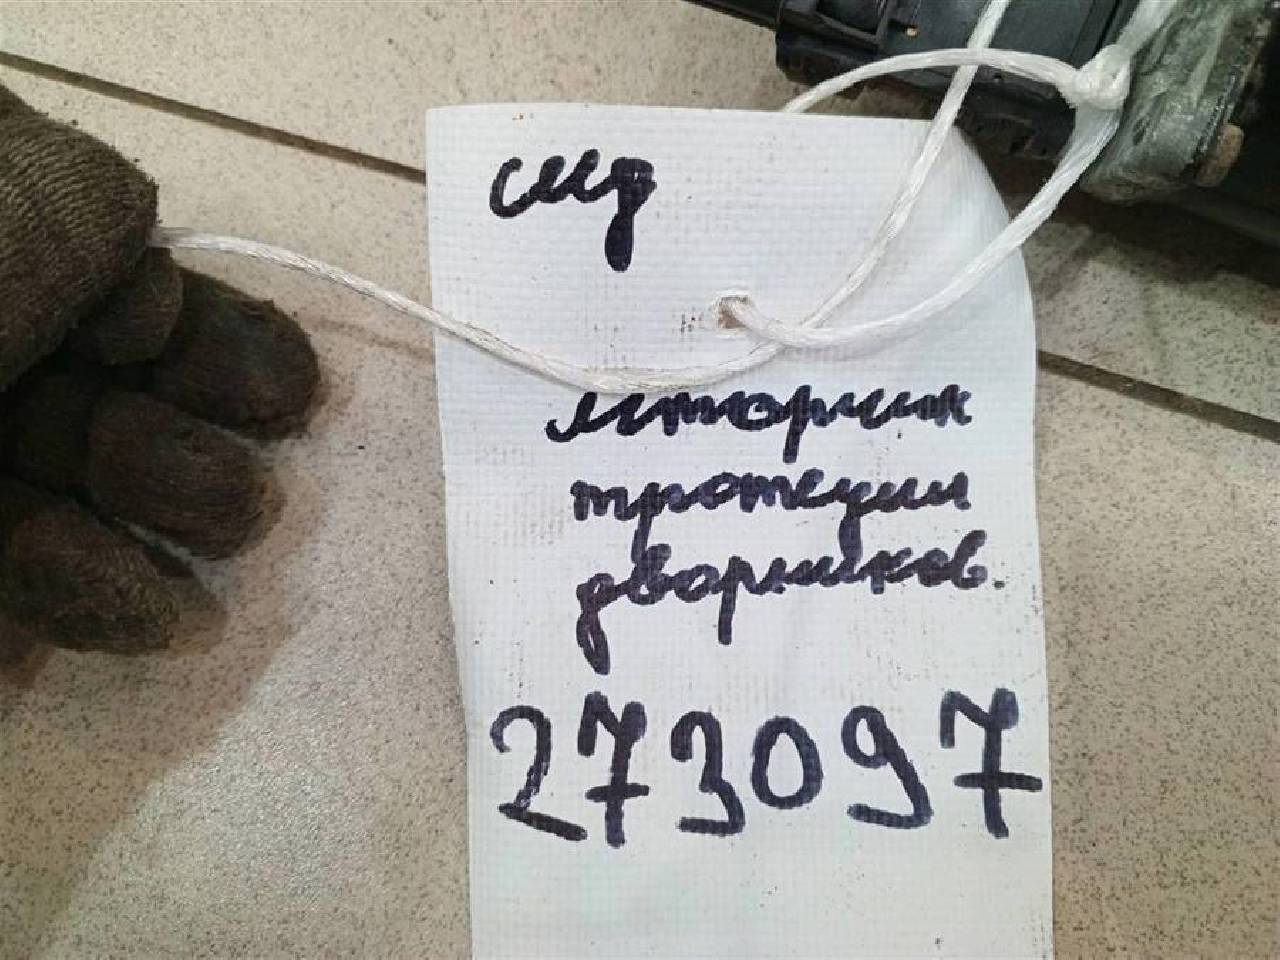 моторчик
трапеции
дворников.
273097